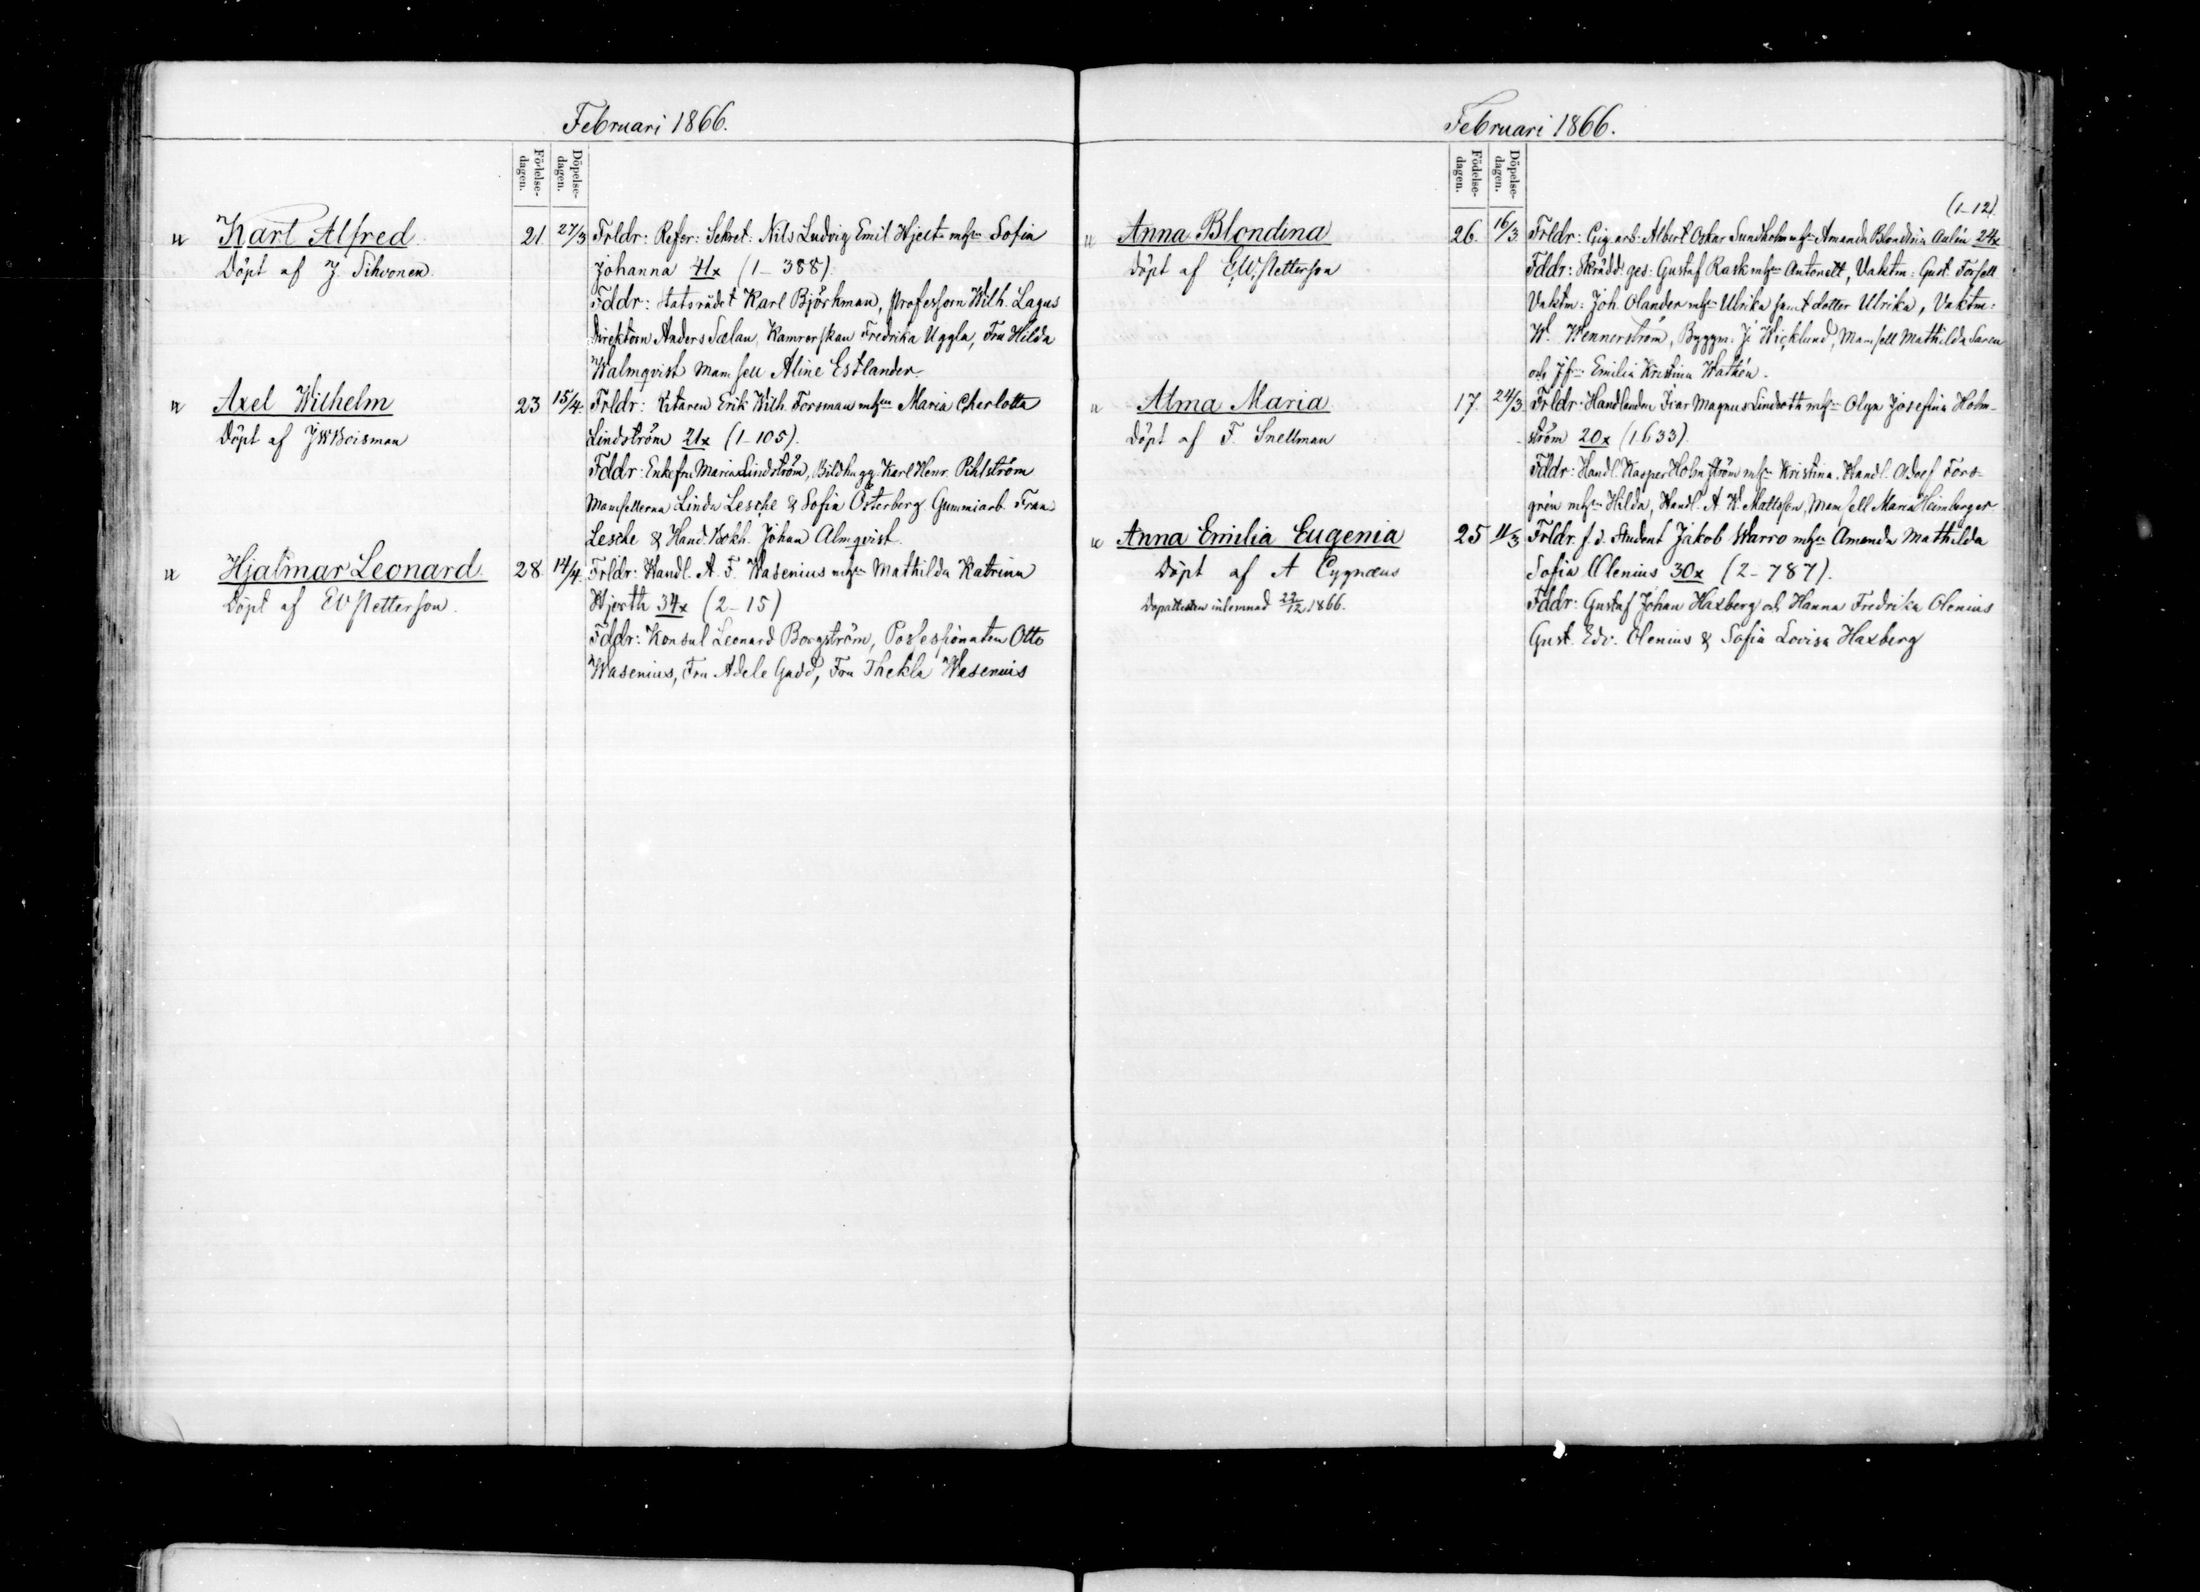 Februari 1866.
Födelse-
dagen.
Döpelse-
dagen.
u Karl Alfred 21 27/3 Frldr: Refer: Sekret: Nils Ludvig Emil Hjelt m hn Sofia
Döpt af J. Sihvonen. Johanna 41x (1-388).
Fddr: Statsrådet Karl Björkman, Professorn Wilh. Lagus
Direktorn Anders Sælan, Kamrerskan Fredrika Uggla, Fru Hilda
Malmqvist Mamsell Aline Estlander.
u Axel Wilhelm 23 15/4 Frldr: Erik Wilh. Forsman m hn Maria Charlotta
Döpt af JWBoisman Lindström 21x (1-105).
Fddr: Enkefru Maria Lindström, Bildhugg. Karl Henr. Pihlström
Mamsellerna Linda Lesche & Sofia Österberg Gummiarb. Frans
Lesche & Hand. Bokh. Johan Almqvist.
u Hjalmar Leonard 28 14/4 Frldr: Handl. A. F. Wasenius m hn Mathilda Katrina
Döpt af Hjerth 34x (2-15)
Fddr: Konsul Leonard Borgström, Possessionaten Otto
Wasenius, Fru Adele Gadd, Fru Thekla Wasenius
Februari 1866.
Födelse-
dagen.
Döpelse-
dagen.
(1-12).
u Anna Blondina 26. 16/3 Frldr: Cig. arb: Albert Oskar Sundholm m hn Amanda Blondina Aulén 24x
Döpt af Fddr: Skrädd. ges: Gustaf Rask m hn Antonett, Vaktm: Gust. Forsell
Vaktm: Joh. Olander m hn Ulrika samt dotter Ulrika, Vaktm:
W. Wennerström, Byggm: J. Wicklund, Mamsell Mathilda Saren
och Jfr Emilia Kristina Watén.
u Alma Maria 17. 24/3 Frldr: Handlanden Ivar Magnus Lindroth m hn Olga Josefina Holm-
Döpt af F. Snellman ström 20x (1.633).
Fddr: Handl. Kasper Holmström m hn Kristina, Handl. Adolf Fors-
grén m hn Hilda, Handl. A. W. Mattsson, Mamsell Maria Heimberger
u Anna Emilia Eugenia 25 11/3 Frldr. f.d. Student Jakob Warro m hn Amanda Mathilda
Döpt af A Cygnæus Sofia Olenius 30x (2-787).
Dopattesten inlemnad 22/12 1866. Fddr: Gustaf Johan Haxberg och Hanna Fredrika Olenius
Gust. Edv. Olenius & Sofia Lovisa Haxberg